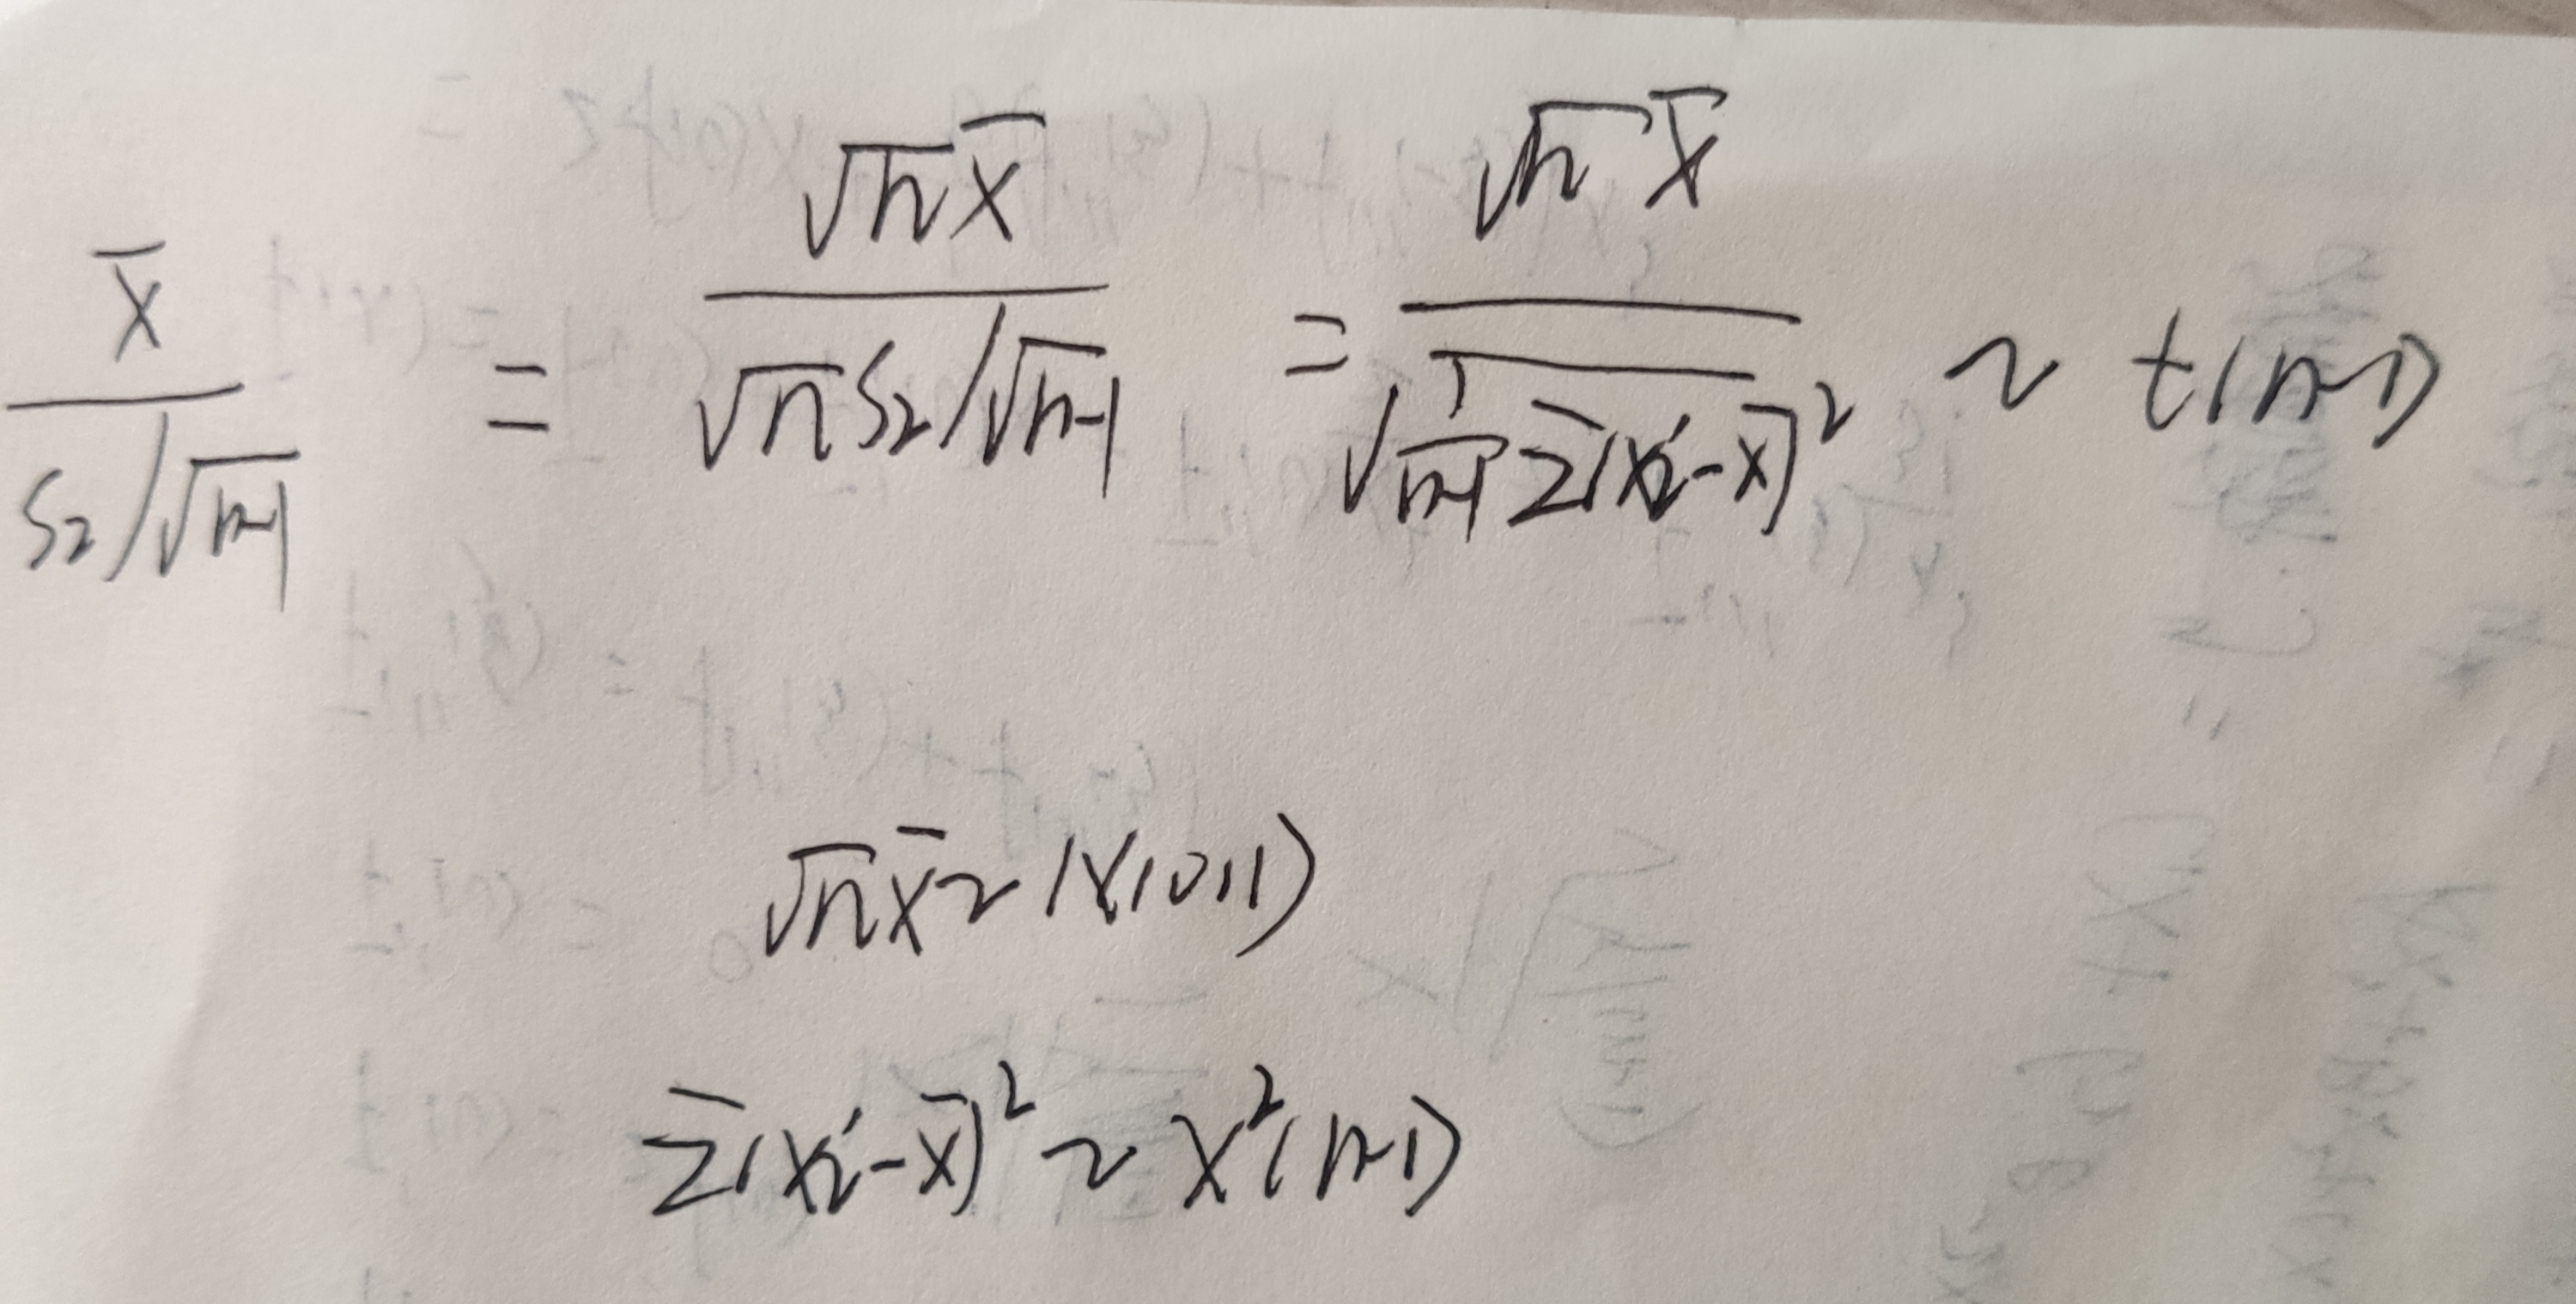 x̄ / (S₂/√(n-1)) = √n x̄ / (√n S₂/√(n-1)) = √n x̄ / √(1/(n-1) Σ(xᵢ-x̄)²) ~ t(n-1)
√n x̄ ~ N(0,1)
Σ(xᵢ-x̄)² ~ χ²(n-1)